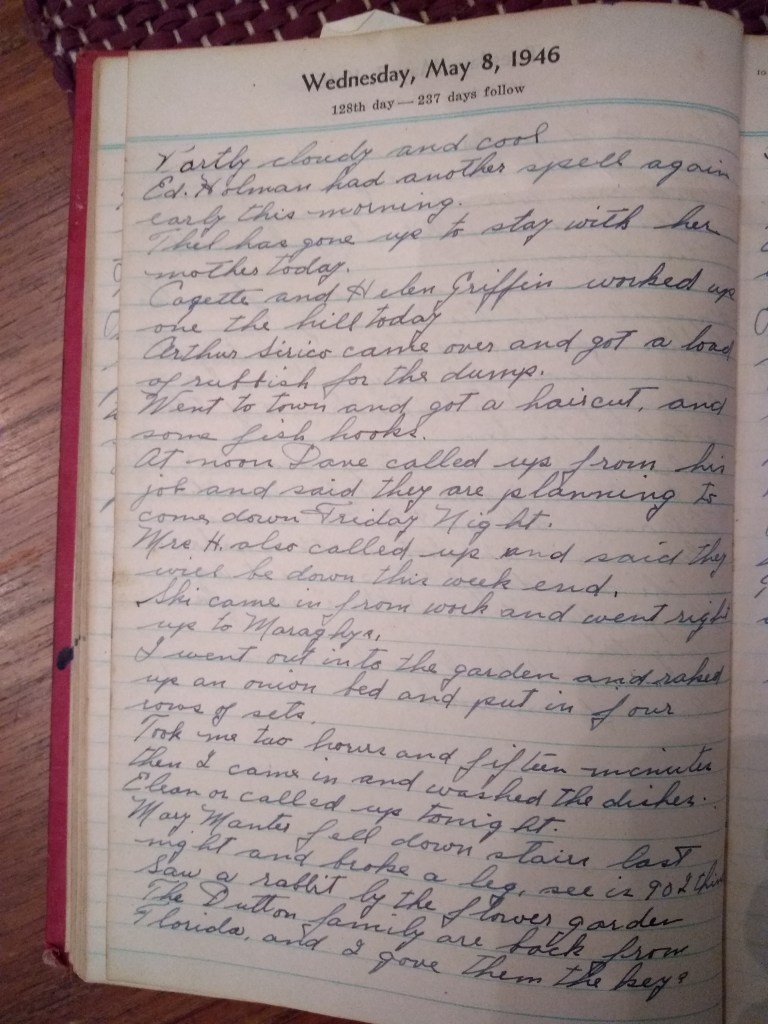 Wednesday, May 8, 1946
128th day — 237 days follow
Partly cloudy and cool
Ed. Holman had another spell again
early this morning.
Thel has gone up to stay with her
mother today.
Cagette and Helen Griffin worked up
one the hill today
Arthur Sirico came over and got a load
of rubbish for the dump.
Went to town and got a haircut, and
some fish hooks.
At noon Dave called up from his
job and said they are planning to
come down Friday Night.
Mrs H. also called up and said they
will be down this week end.
Ski came in from work and went right
up to Maraghys.
I went out into the garden and raked
up an onion bed and put in four
rows of sets.
Took me two hours and fifteen minutes
then I came in and washed the dishes.
Eleanor called up tonight.
Mary Manter fell down stairs last
night and broke a leg, see is 90 I think
Saw a rabbit by the flower garden
The Dutton family are back from
Florida, and I gave them the keys